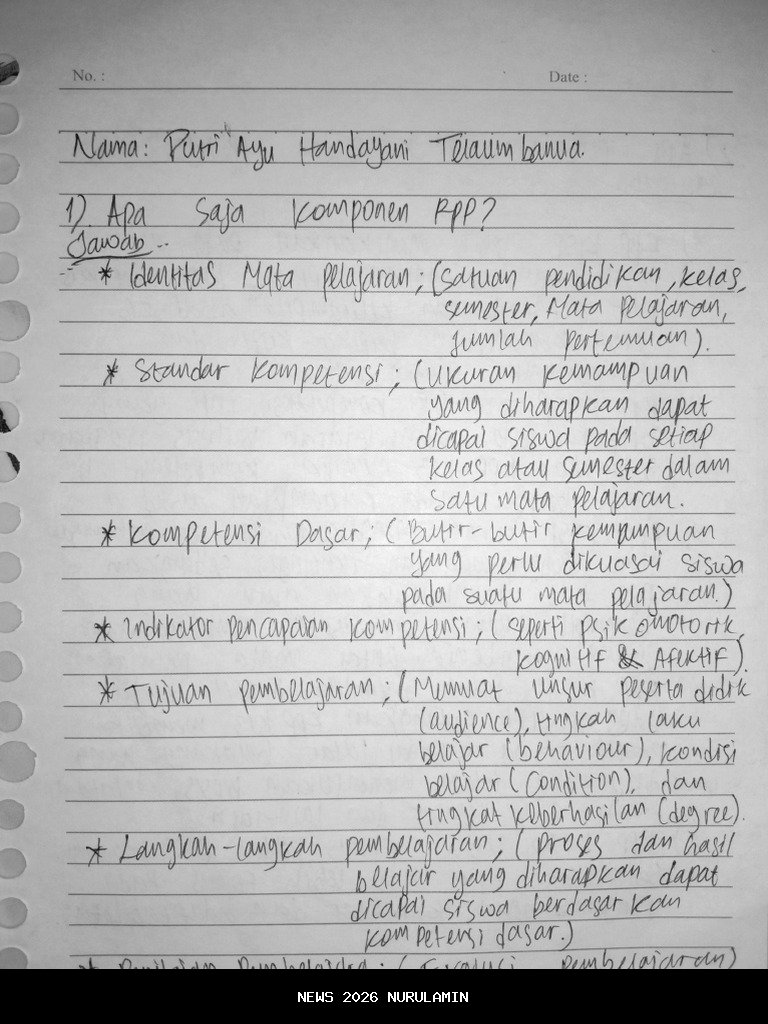 No. :
Date :
Nama: Putri Ayu Handayani Telaumbanua.
1). Apa saja komponen RPP?
Jawab --
* Identitas Mata pelajaran ; (satuan pendidikan, kelas,
semester, Mata pelajaran,
jumlah pertemuan).
* Standar kompetensi ; (ukuran kemampuan
yang diharapkan dapat
dicapai siswa pada setiap
kelas atau semester dalam
satu mata pelajaran.
* Kompetensi Dasar ; (Butir-butir kempmpuan
yang perlu dikuasai siswa
pada suatu mata pelajaran.)
* Indikator pencapaian kompetensi ; (seperti psikomotorik,
kognitif & Afektif).
* Tujuan pembelajaran ; (Memuat unsur peserta didik
(audience), tingkah laku
belajar (behaviour), kondisi
belajar (condition), dan
tingkat keberhasilan (degree).
* Langkah-langkah pembelajaran ; (proses dan hasil
belajar yang diharapkan dapat
dicapai siswa berdasarkan
kompetensi dasar.)
pembelajaran)
NEWS 2026 NURULAMIN